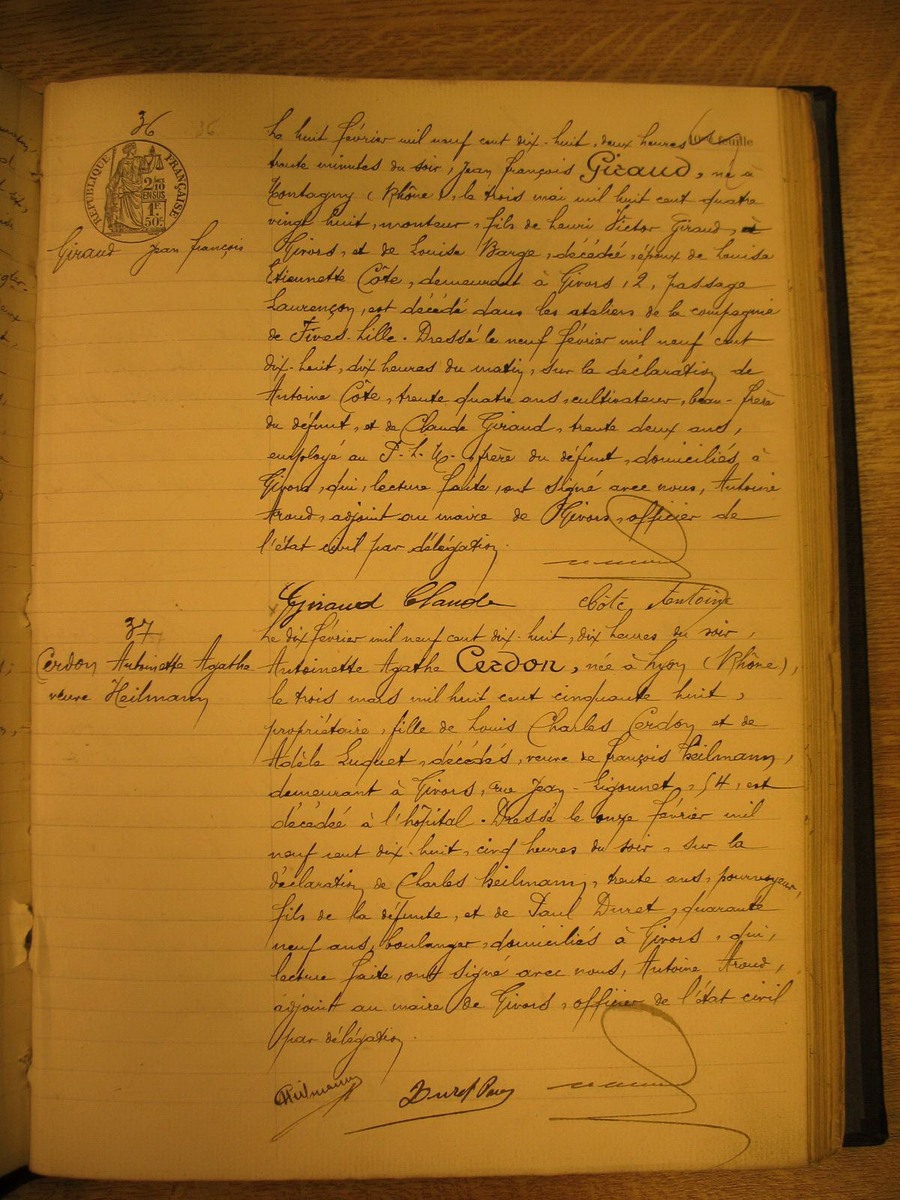 36 36
RÉPUBLIQUE FRANÇAISE
2/10 EN SUS
1F 50c
Giraud Jean François
Le huit février mil neuf cent dix-huit, deux heures
feuille
trente minutes du soir, Jean François Giraud, né à
Montagny (Rhône), le trois mai mil huit cent quatre
vingt huit, monteur, fils de henri Victor Giraud, à
Givors, et de Louise Barge, décédée, époux de Louise
Etiennette Côte, demeurant à Givors, 2, passage
Laurençon, est décédé dans les ateliers de la compagnie
de Fives-Lille. Dressé le neuf février mil neuf cent
dix-huit, dix heures du matin, sur la déclaration de
Antoine Côte, trente quatre ans, cultivateur, beau-frère
du défunt, et de Claude Giraud, trente deux ans,
employé au P.L.M. frère du défunt, domiciliés à
Givors, qui, lecture faite, ont signé avec nous, Antoine
Aroud, adjoint au maire de Givors, officier de
l'état civil par délégation.
Giraud Claude Côte Antoine
37
Cerdon Antoinette Agathe
veuve Heilmann
Le dix février mil neuf cent dix-huit, dix heures du soir,
Antoinette Agathe Cerdon, née à Lyon (Rhône),
le trois mars mil huit cent cinquante huit,
propriétaire, fille de Louis Charles Cerdon et de
Adèle Luquet, décédés, veuve de françois heilmann,
demeurant à Givors, rue Jean-Ligonnet, 54, est
décédée à l'hôpital. Dressé le onze février mil
neuf cent dix-huit, cinq heures du soir, sur la
déclaration de Charles heilmann, trente ans, pourvoyeur,
fils de la défunte, et de Paul Duret, quarante
neuf ans, boulanger, domiciliés à Givors, qui,
lecture faite, ont signé avec nous, Antoine Aroud,
adjoint au maire de Givors, officier de l'état civil
par délégation.
Heilmann Duret Paul